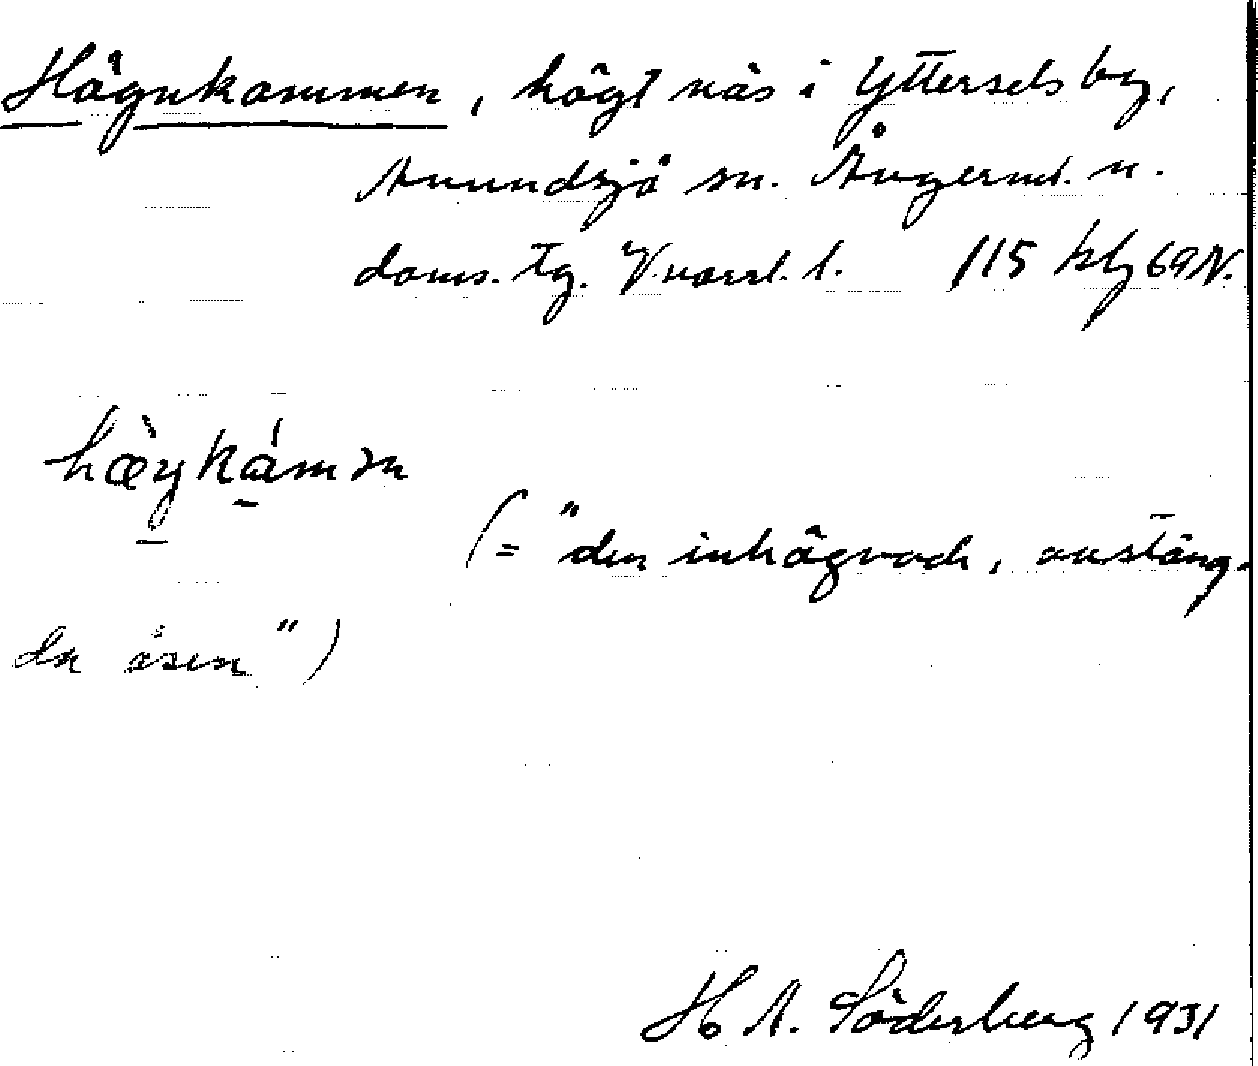 Hägnkammen, högt näs i Yttersels by,
Anundsjö sn. Ångerml. n.
doms. tg. V.norrl. l. 115 kbl 69 N.
(= "den inhägnade, avstäng-
da åsen")
H A. Söderberg 1931